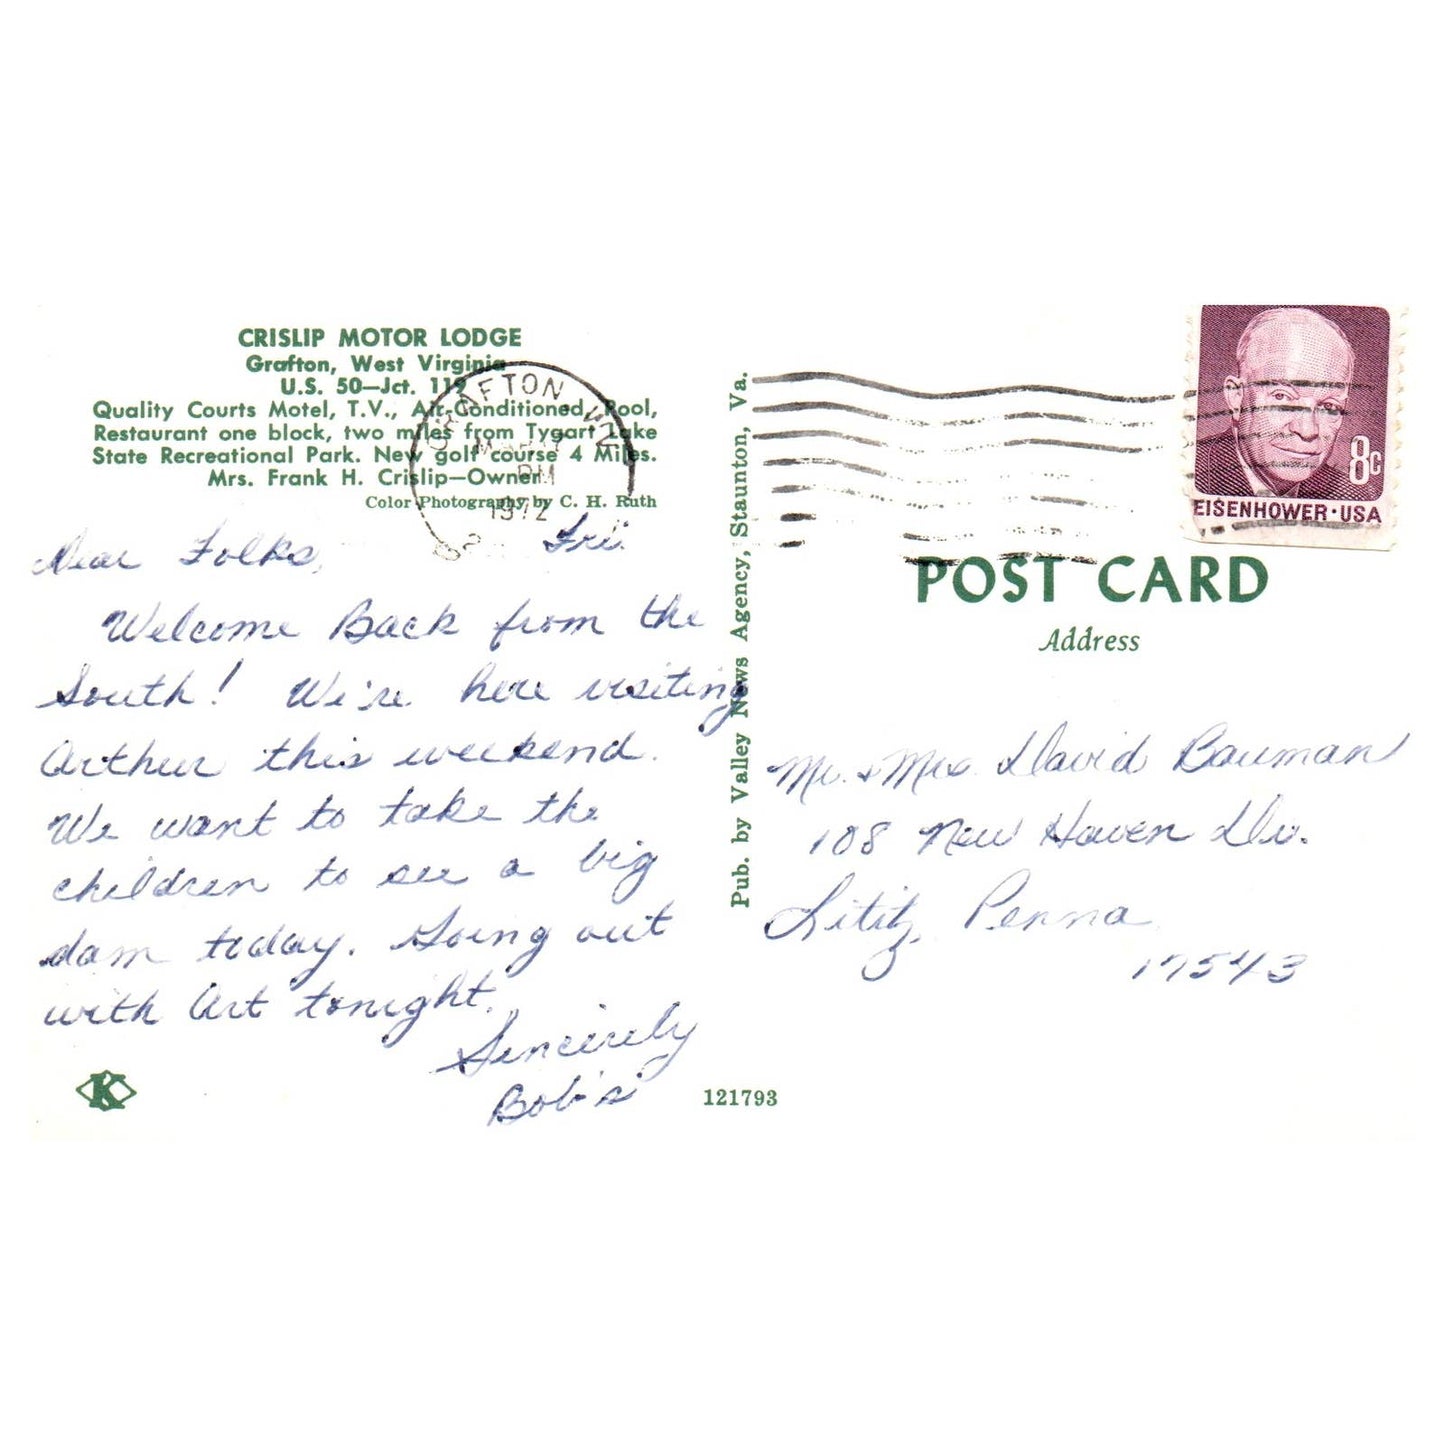 CRISLIP MOTOR LODGE
Grafton, West Virginia
U.S. 50—Jct. 119
Quality Courts Motel, T.V., Air-Conditioned, Pool,
Restaurant one block, two miles from Tygart Lake
State Recreational Park. New golf course 4 Miles.
Mrs. Frank H. Crislip—Owner
Color Photography by C. H. Ruth
GRAFTON W.V.
PM
1972
Dear Folks, Fri.
Welcome Back from the
South! We're here visiting
Arthur this weekend.
We want to take the
children to see a big
dam today. Going out
with Art tonight.
Sincerely
Bob's
K
121793
Pub. by Valley News Agency, Staunton, Va.
8c
EISENHOWER·USA
POST CARD
Address
Mr. & Mrs. David Bauman
108 New Haven Dr.
Lititz, Penna
17543